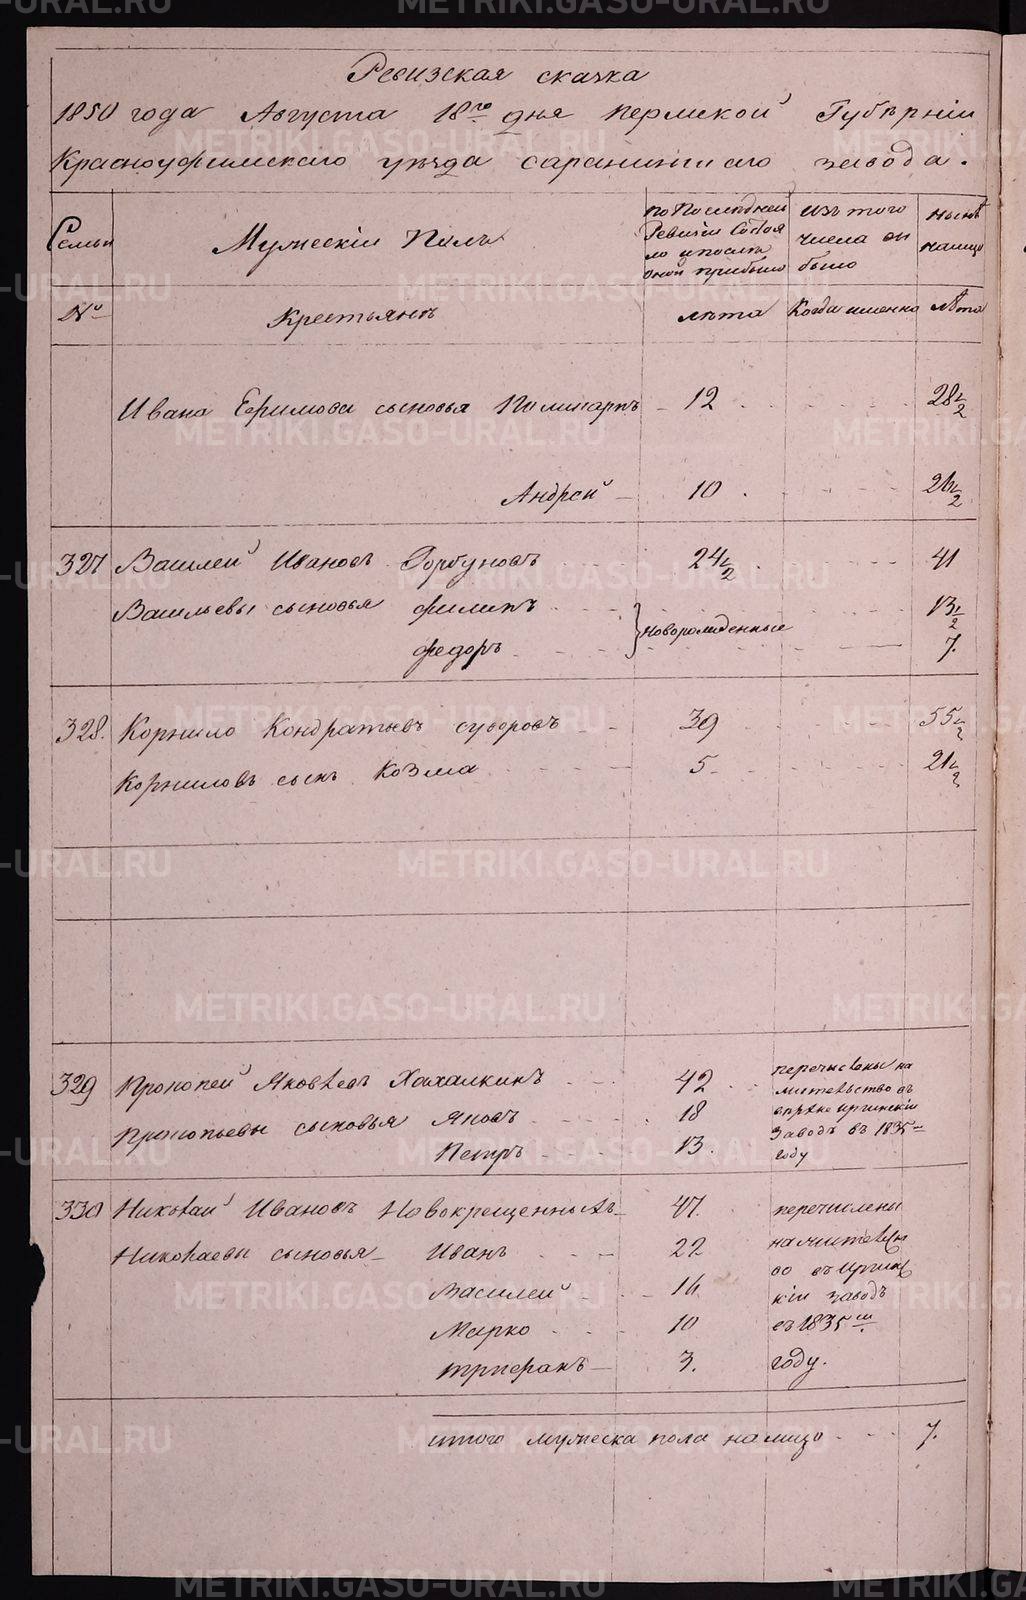 Ревизская сказка
1850 года Августа 18го дня Пермской Губернiи
Красноуфимскаго уезда саранинскаго завода.
Семьи
Мужескiй Полъ
по Последней Ревизiи Состояло и после оной прибыло
изъ того числа выбыло
ныне налицо
№
Крестьянъ
лета
Когда именно
Лета
Ивана Ефимова сыновья Поликарпъ 12 28 1/2
Андрей 10 26 1/2
327 Василей Ивановъ Горбуновъ 24 1/2 41
Васильевы сыновья филипъ 13 1/2
новорожденные
федоръ 7.
328. Корнило Кондратьевъ суворовъ 39 55 1/2
Корниловъ сынъ Козма 5 21 1/2
329 Прокопей Яковлевъ Хахалкинъ 42
Прокопьевы сыновья Яковъ 18
Петръ 13.
перечислены на
жительство въ
верхне иргинскiй
Заводъ въ 1835м
году
330 Николай Ивановъ Новокрещенныхъ 47.
Николаевы сыновья Иванъ 22
Василей 16
Марко 10
трифанъ 3.
перечислены
на жительст
во въ иргин
скiй заводъ
въ 1835м
году.
итого мужеска пола налицо 7.
METRIKI.GASO-URAL.RU